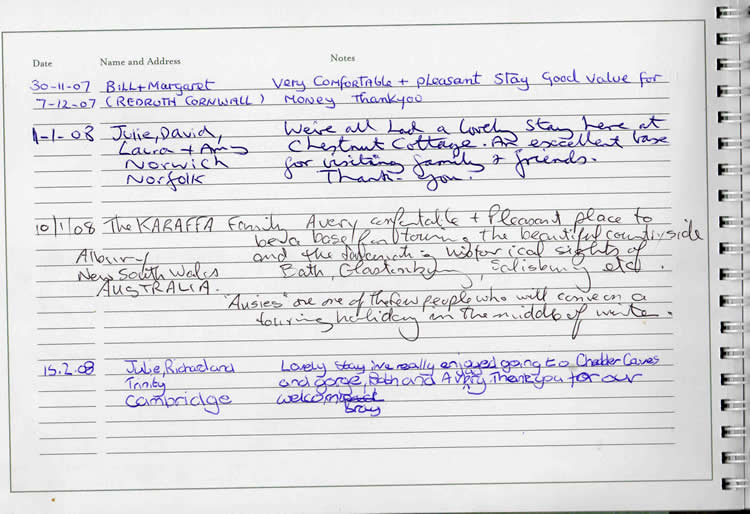 Date Name and Address Notes
30-11-07 Bill + Margaret Very Comfortable + pleasant stay Good Value for
7-12-07 (REDRUTH CORNWALL) Money Thankyoo
1-1-08 Julie, David, We've all had a lovely stay here at
Laura + Amy Chestnut Cottage. An excellent base
Norwich for visiting family & friends.
Norfolk Thank-you.
10/1/08 The KARAFFA Family A very comfortable + Pleasant place to
be a base for touring the beautiful countryside
Albury and the historical sights of
New South Wales Bath, Glastonbury, Salisbury etc.
AUSTRALIA.
"Ausies" are one of the few people who will come on a
touring holiday in the middle of winter.
15.2.08 Julie, Richard and Lovely stay ive really enjoyed going to Chedder Caves
Trinity and gorge, Bath and Thankyou for our
Cambridge welcome